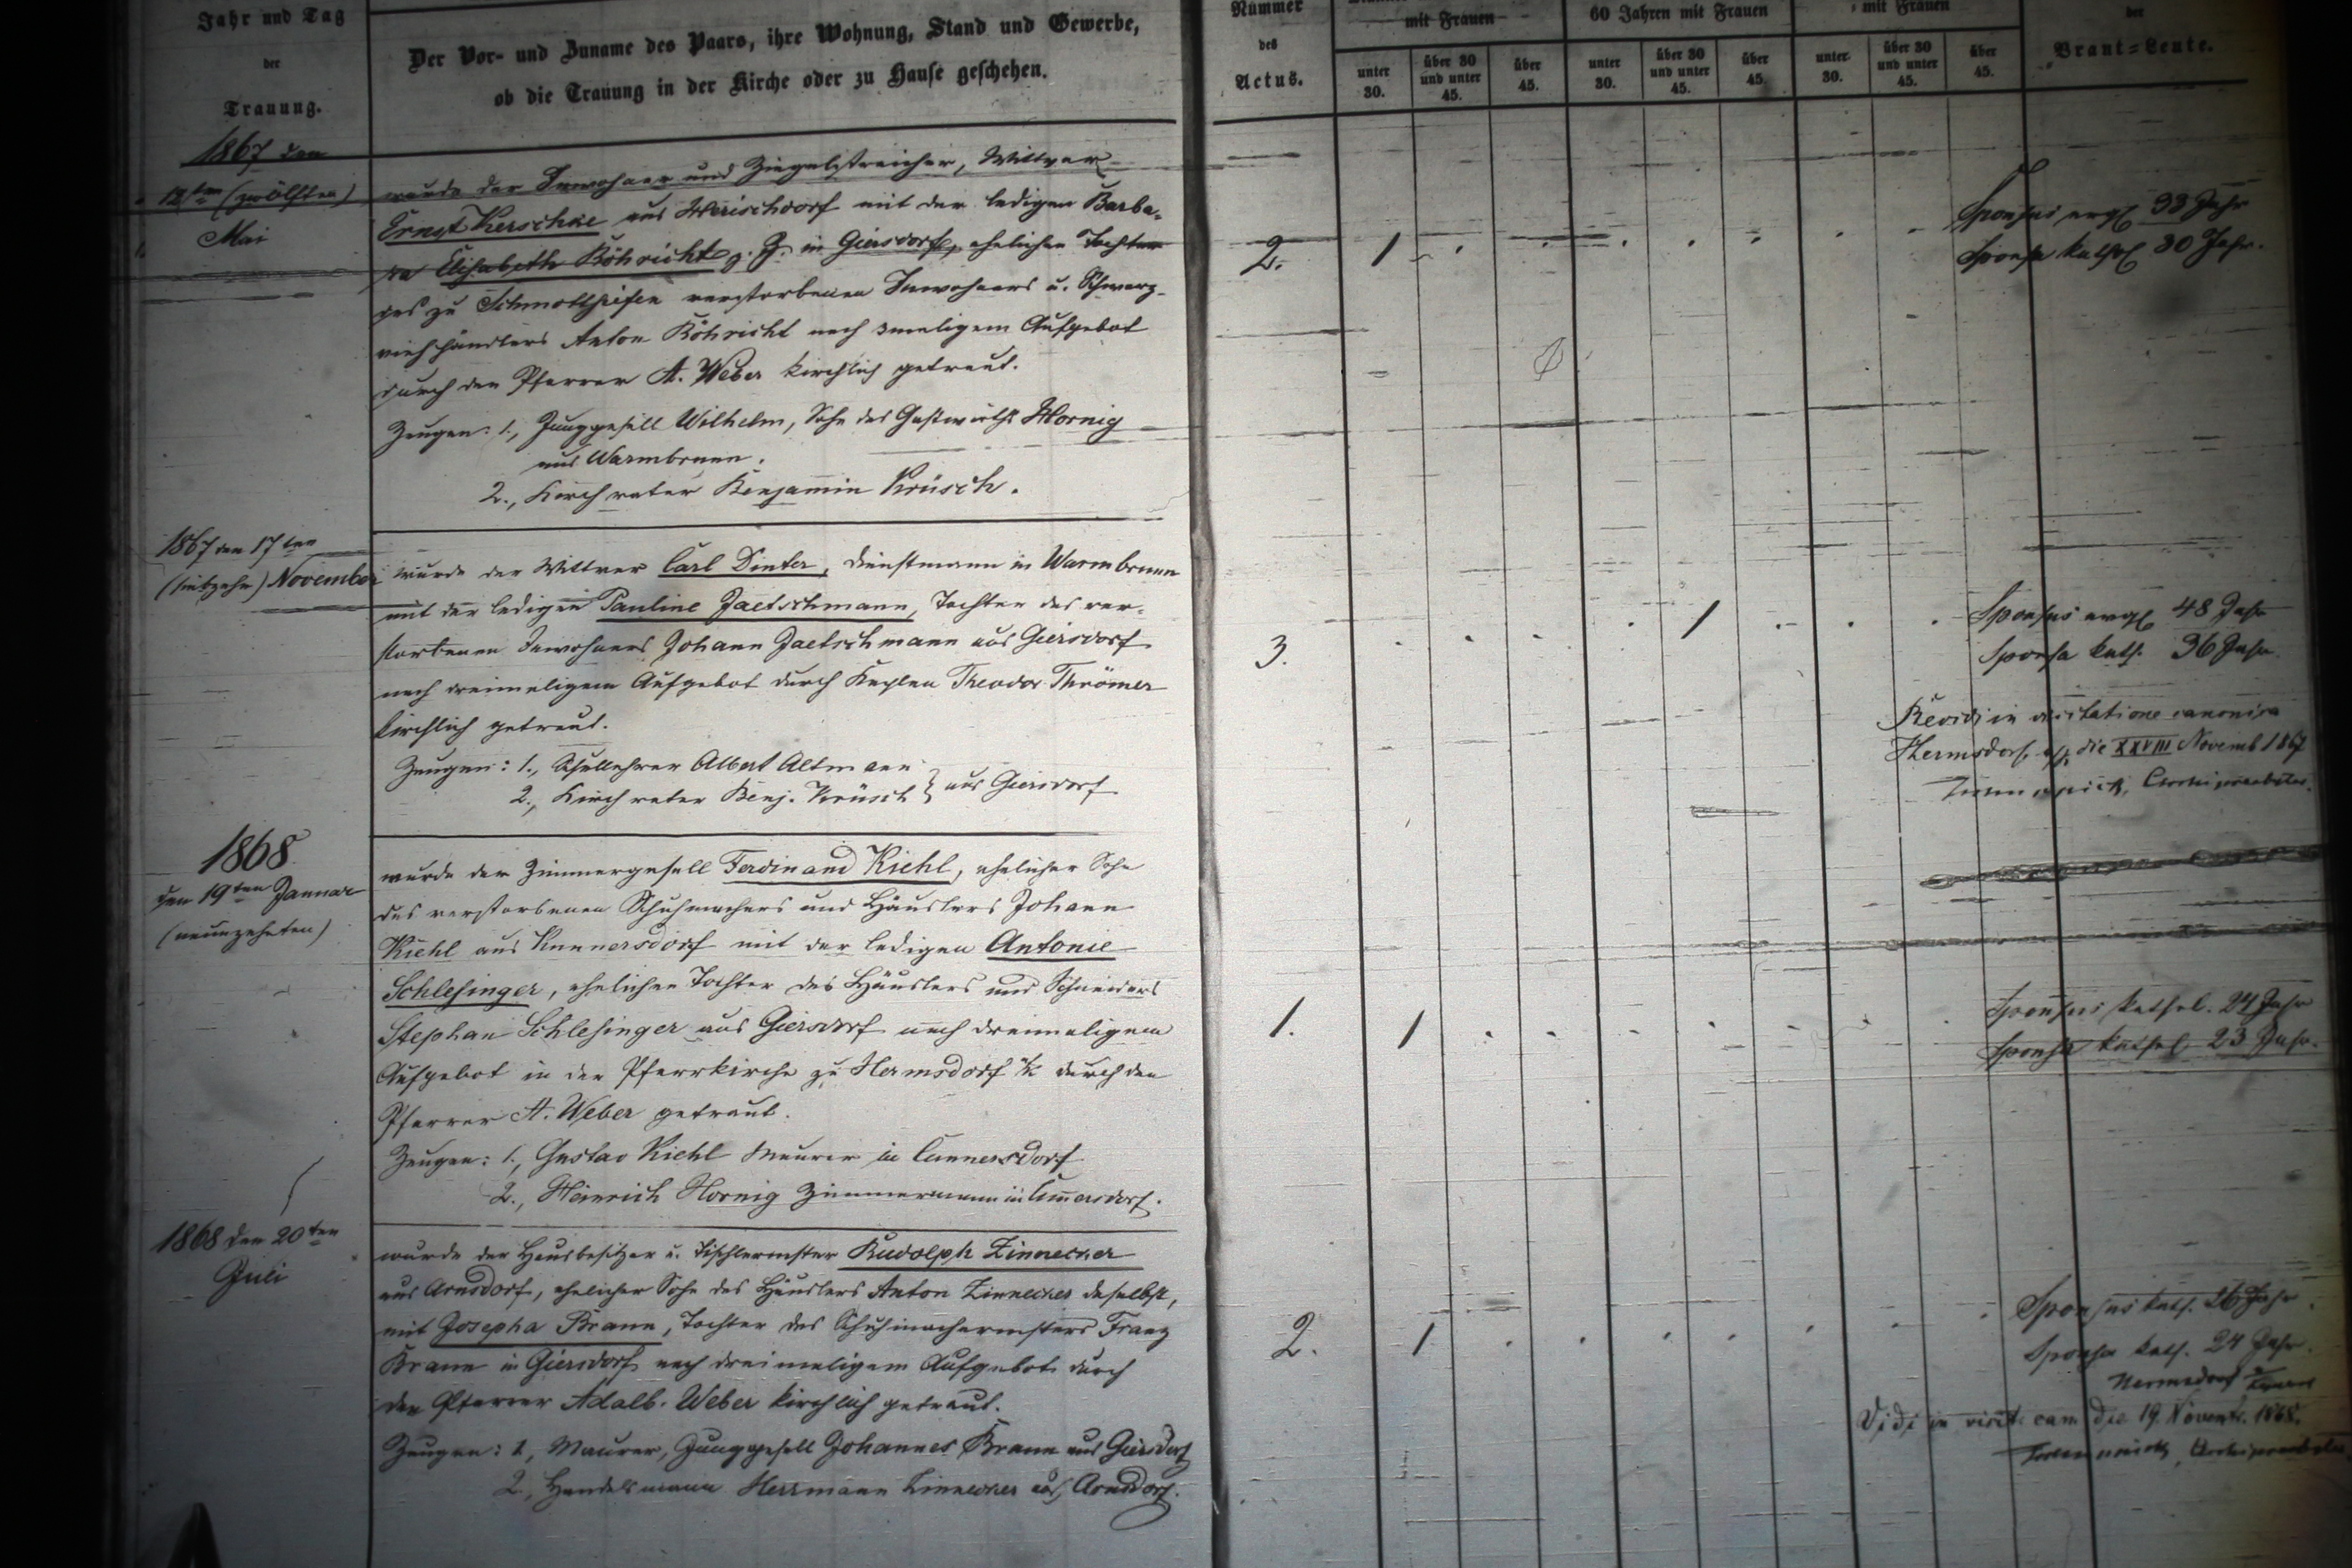 Jahr und Tag
der
Trauung.
Der Vor- und Zuname des Paars, ihre Wohnung, Stand und Gewerbe,
ob die Trauung in der Kirche oder zu Hause geschehen.
Nummer
des
Actus.
mit Frauen
60 Jahren mit Frauen
mit Frauen
unter 30.
über 30 und unter 45.
über 45.
unter 30.
über 30 und unter 45.
über 45.
unter 30.
über 30 und unter 45.
über 45.
der
Braut=Leute.
1867 den
12ten (zwölften)
Mai
wurde der Inwohner und Ziegelstreicher, Wittwer
Ernst Kerschke aus Herischdorf mit der ledigen Barba-
ra Elisabeth Röhricht z. Z. in Giersdorf, ehelichen Tochter
des zu Schmottseifen verstorbenen Inwohners u. Schwarz-
viehhändlers Anton Röhricht nach 3maligem Aufgebot
durch den Pfarrer A. Weber kirchlich getraut.
Zeugen: 1., Junggesell Wilhelm, Sohn des Gastwirths Hornig
aus Warmbrunn.
2., Kirchvater Benjamin Krüsch.
2.
1
Sponsus evgl 33 Jahr
Sponsa kathol 30 Jahr.
1867 den 17ten
(siebzehn) November
wurde der Wittwer Carl Dinter, Dienstmann in Warmbrunn
mit der ledigen Pauline Jaetschmann, Tochter des ver-
storbenen Inwohners Johann Jaetschmann aus Giersdorf
nach dreimaligem Aufgebot durch Kaplan Theodor Thrömer
kirchlich getraut.
Zeugen: 1., Schullehrer Albert Altmann
2., Kirchvater Benj. Krüsch } aus Giersdorf
3.
1
Sponsus evgl 48 Jahr
Sponsa kath. 36 Jahr.
Revidi in visitatione canonica
Hermsdorf die XXVIII Novemb 1867
Archipresbyter.
1868
den 19ten Januar
(neunzehnten)
wurde der Zimmergesell Ferdinand Kiehl, ehelicher Sohn
des verstorbenen Schuhmachers und Häuslers Johann
Kiehl aus Kunnersdorf mit der ledigen Antonie
Schlesinger, ehelichen Tochter des Häuslers und Schneiders
Stephan Schlesinger aus Giersdorf nach dreimaligem
Aufgebot in der Pfarrkirche zu Hermsdorf u/K durch den
Pfarrer A. Weber getraut.
Zeugen: 1., Gustav Kiehl Maurer in Cunnersdorf
2., Heinrich Hornig Zimmermann in Cunnersdorf.
1.
1
Sponsus kathol. 24 Jahr
Sponsa kathol. 23 Jahr.
1868 den 20ten
Juli
wurde der Hausbesitzer u. Tischlermstr Rudolph Zinnecker
aus Arnsdorf, ehelicher Sohn des Häuslers Anton Zinnecker daselbst,
mit Josepha Brann, Tochter des Schuhmachermstrs Franz
Brann in Giersdorf nach dreimaligem Aufgebot durch
den Pfarrer Adalb. Weber kirchlich getraut.
Zeugen: 1, Maurer, Junggesell Johannes Brann aus Giersdorf
2., Handelsmann Herrmann Zinnecker aus Arnsdorf.
2.
1
Sponsus kath. 26 Jahr
Sponsa kath. 24 Jahr.
Hermsdorf
Vidi in visit. can. die 19. Novemb. 1868.
Archipresbyter